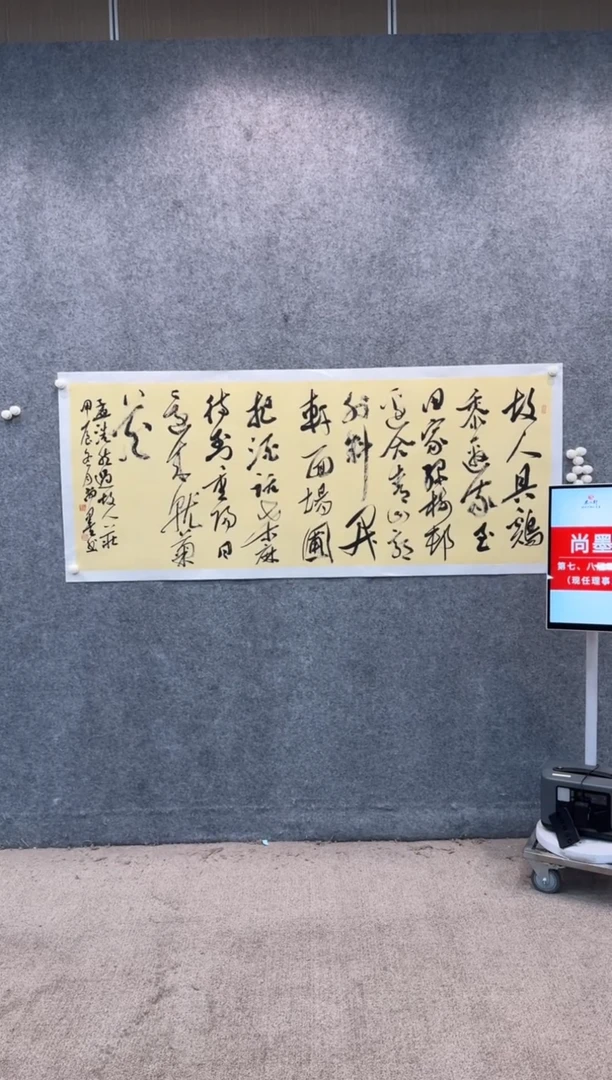 故人具鷄
黍邀我至
田家緑樹邨
邊合青山郭
外斜開
軒面場圃
把酒話桑麻
待到重陽日
還來就菊
花
孟浩然過故人莊
甲辰冬月尚墨書
尚墨
第七、八
（现任理事